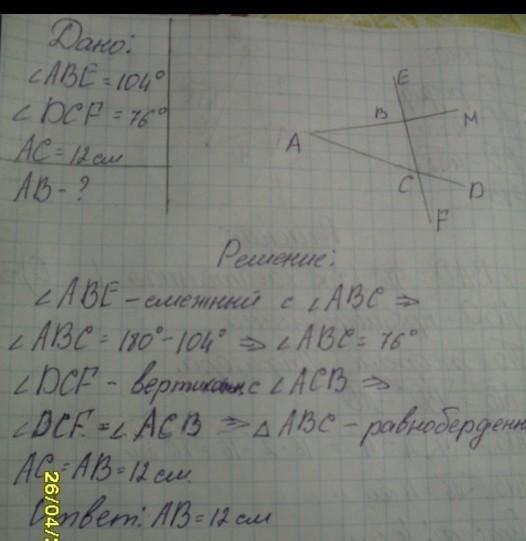 Дано:
∠ABE = 104°
∠DCF = 76°
AC = 12 см
AB - ?
E
B
M
A
C
D
F
Решение:
∠ABE - смежный с ∠ABC ⇒
∠ABC = 180° - 104° ⇒ ∠ABC = 76°
∠DCF - с ∠ACB ⇒
∠DCF = ∠ACB ⇒ △ABC - равноберденн
AC = AB = 12 см.
Ответ: AB = 12 см
26/04/